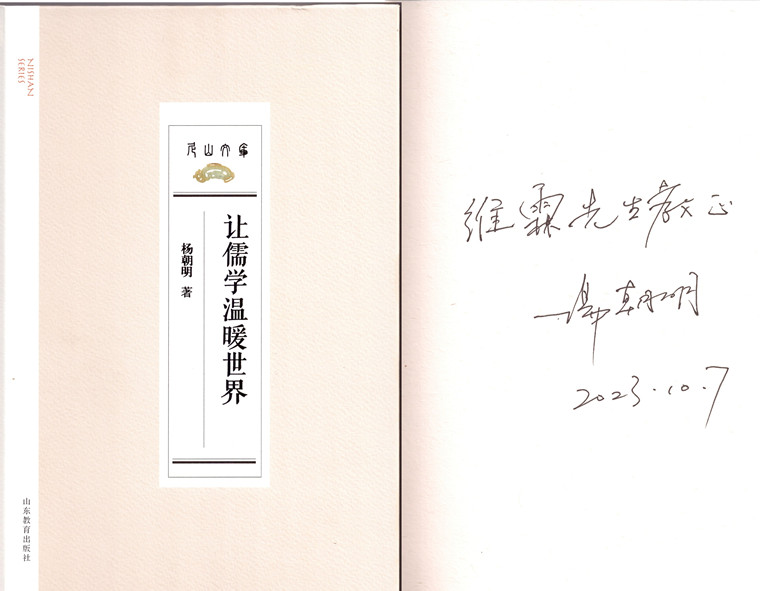 NISHAN
SERIES
尼山文库
让儒学温暖世界
杨朝明 著
山东教育出版社
维霖先生教正
杨朝明
2023.10.7